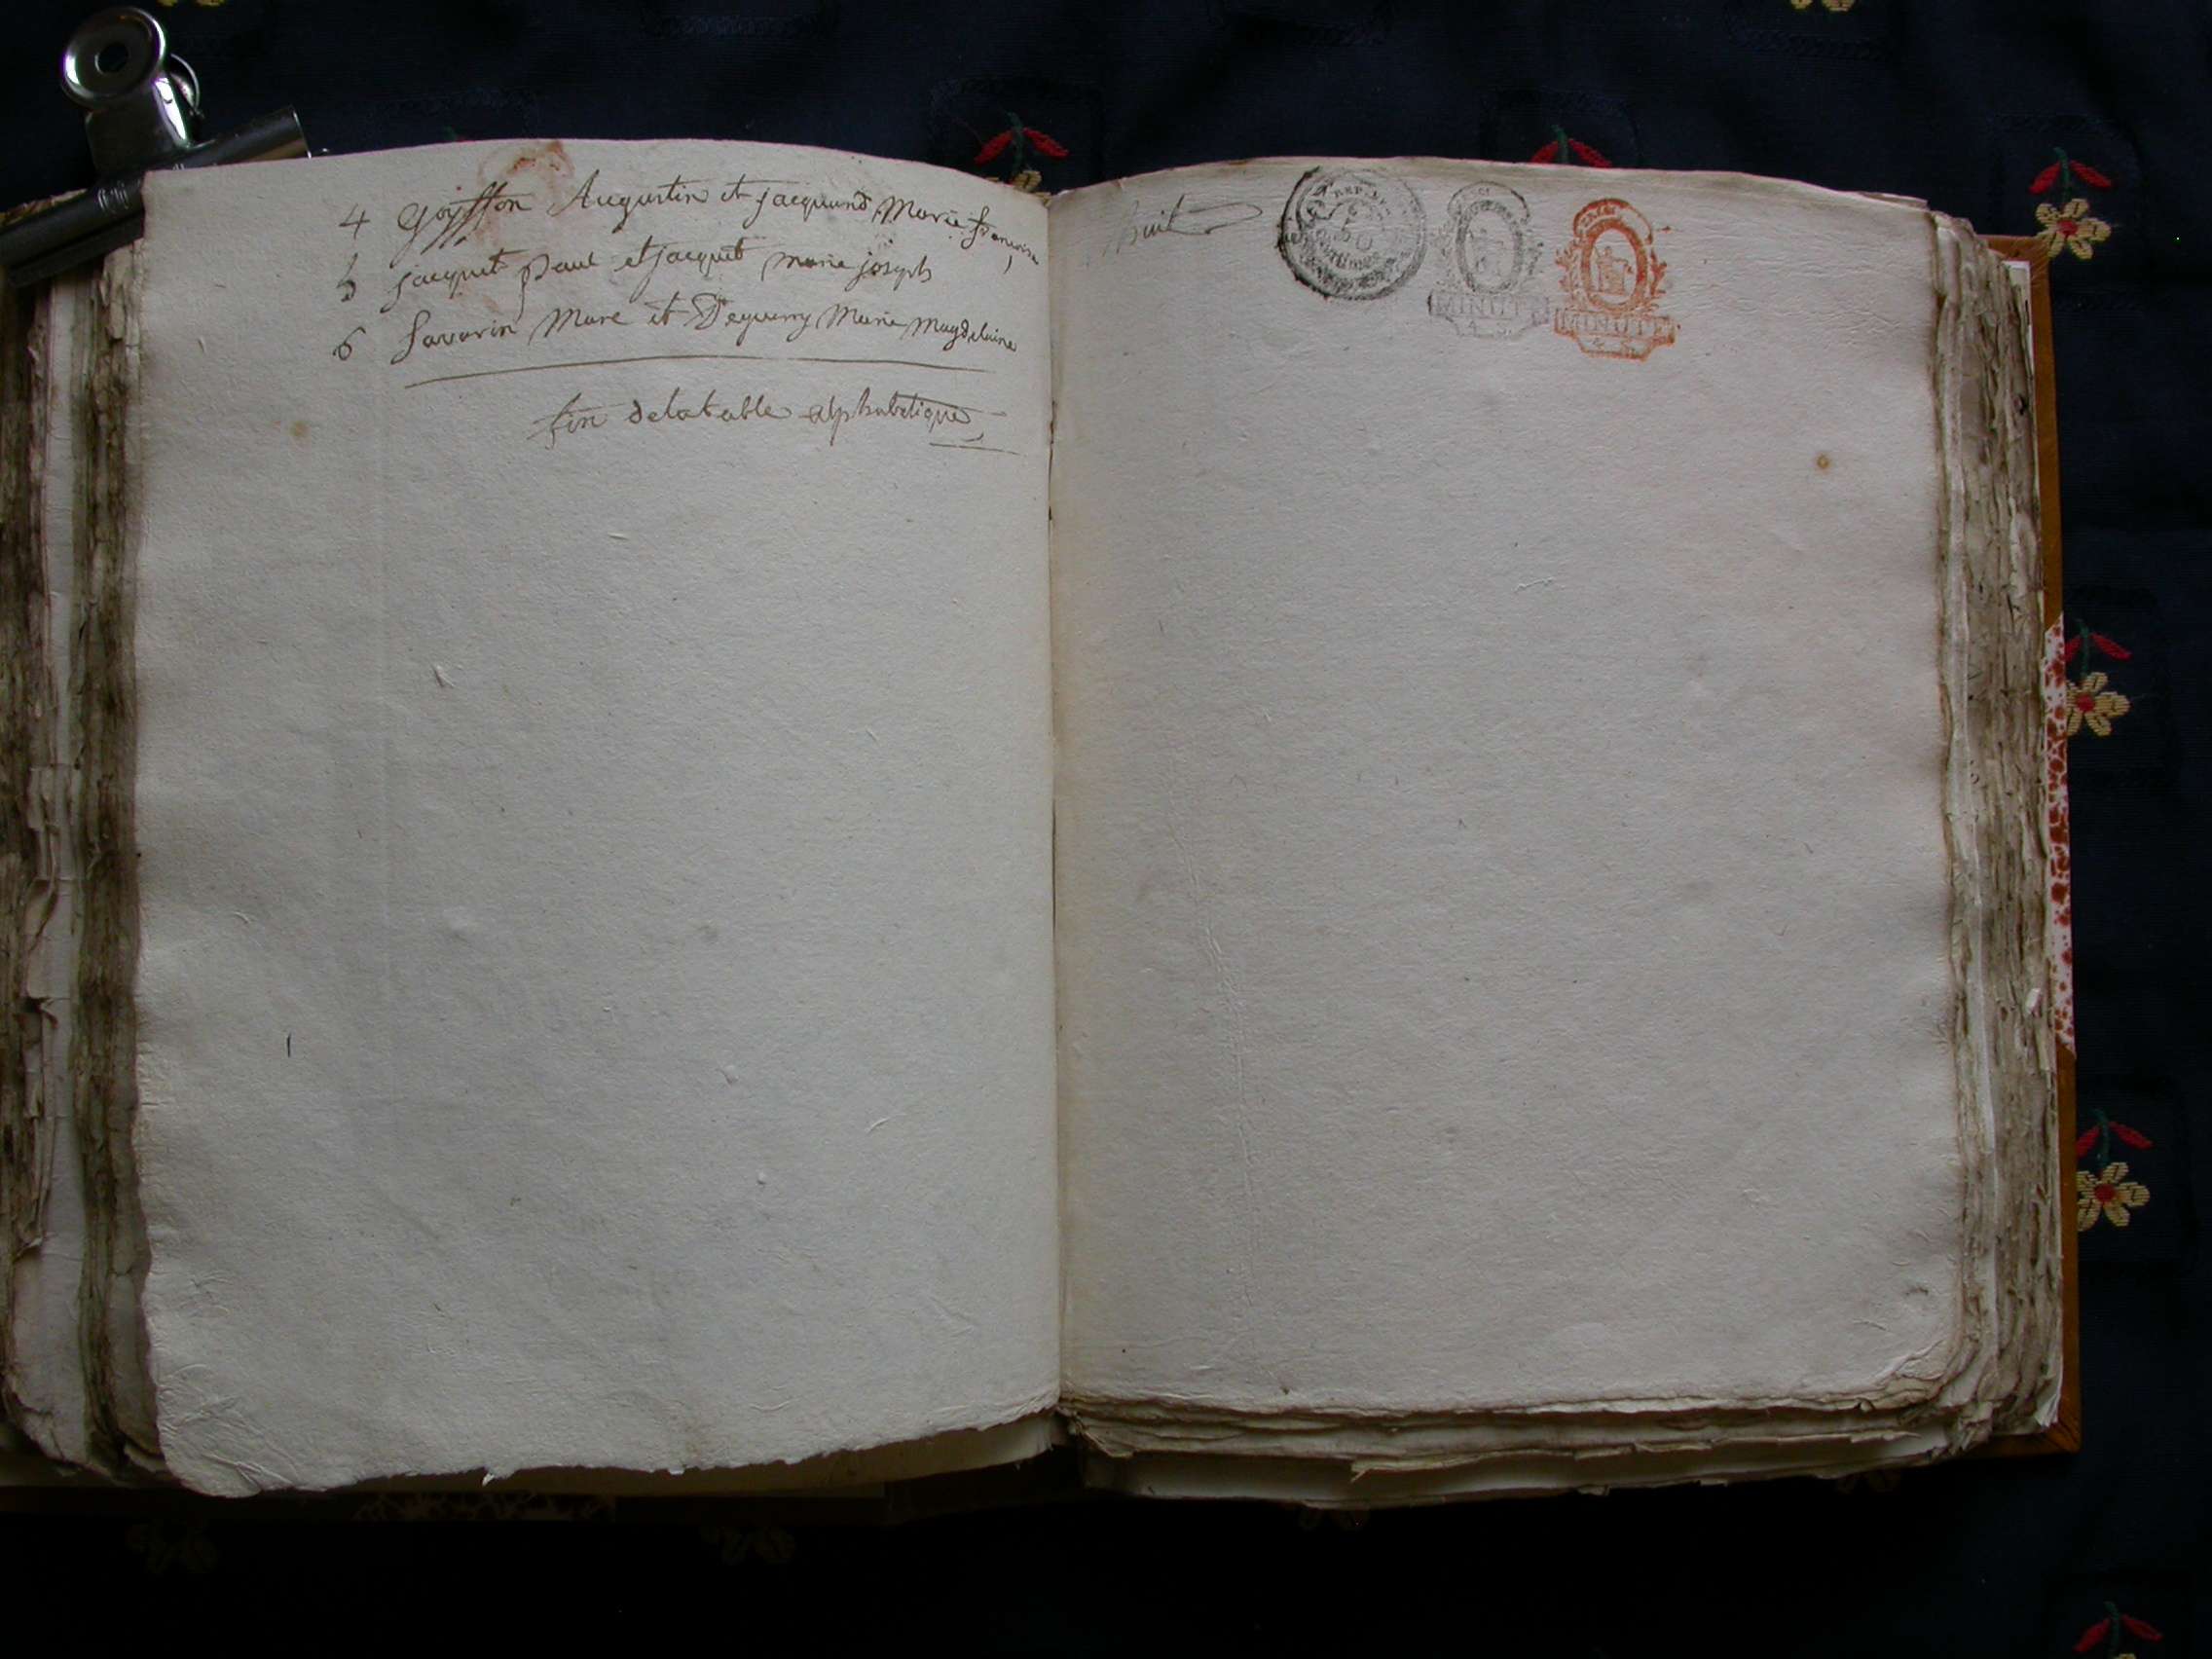 4 Goyffon Augustin et jacquand Marie françoise
5 jacquet Paul et jacquet marie joseph
6 Savarin Marc et Deguerry Marie Magdelaine
fin dela table alphabetique
huit
REP.
MINUTE
MINUTE